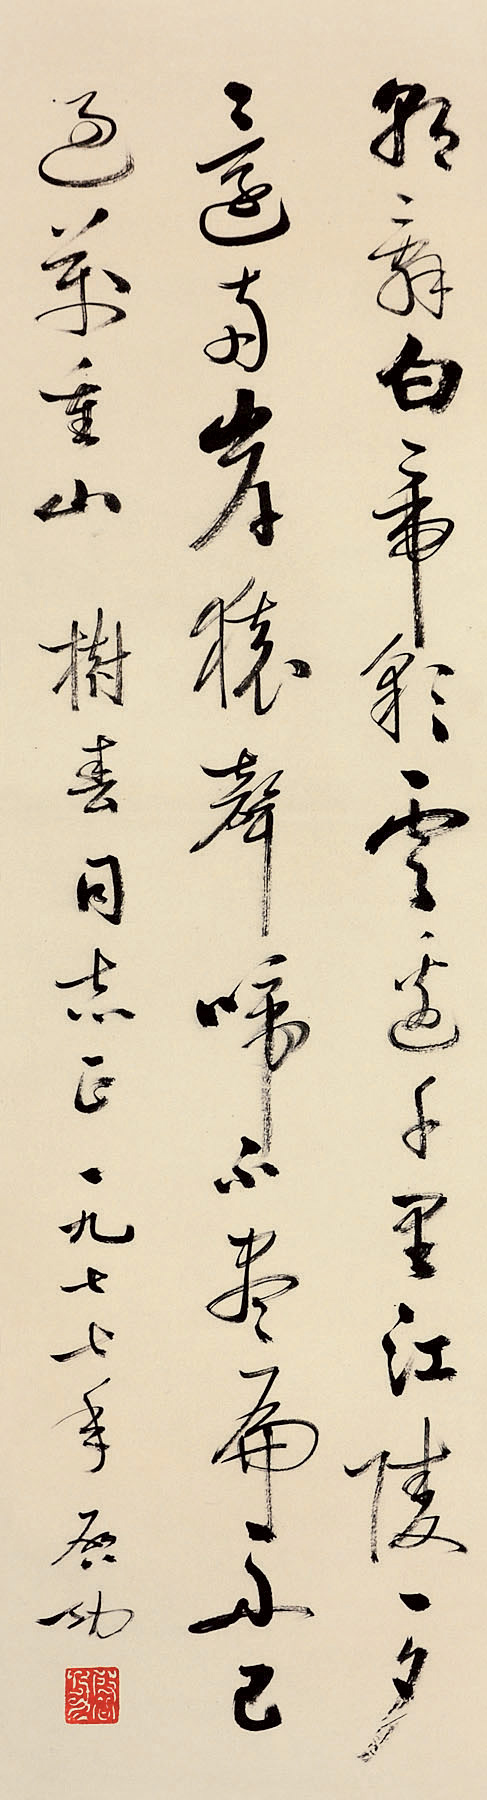 朝辭白帝彩雲邊千里江陵一夕
還兩岸猿聲啼不盡扁舟已
過萬重山 樹春同志正 一九七七年 啓功